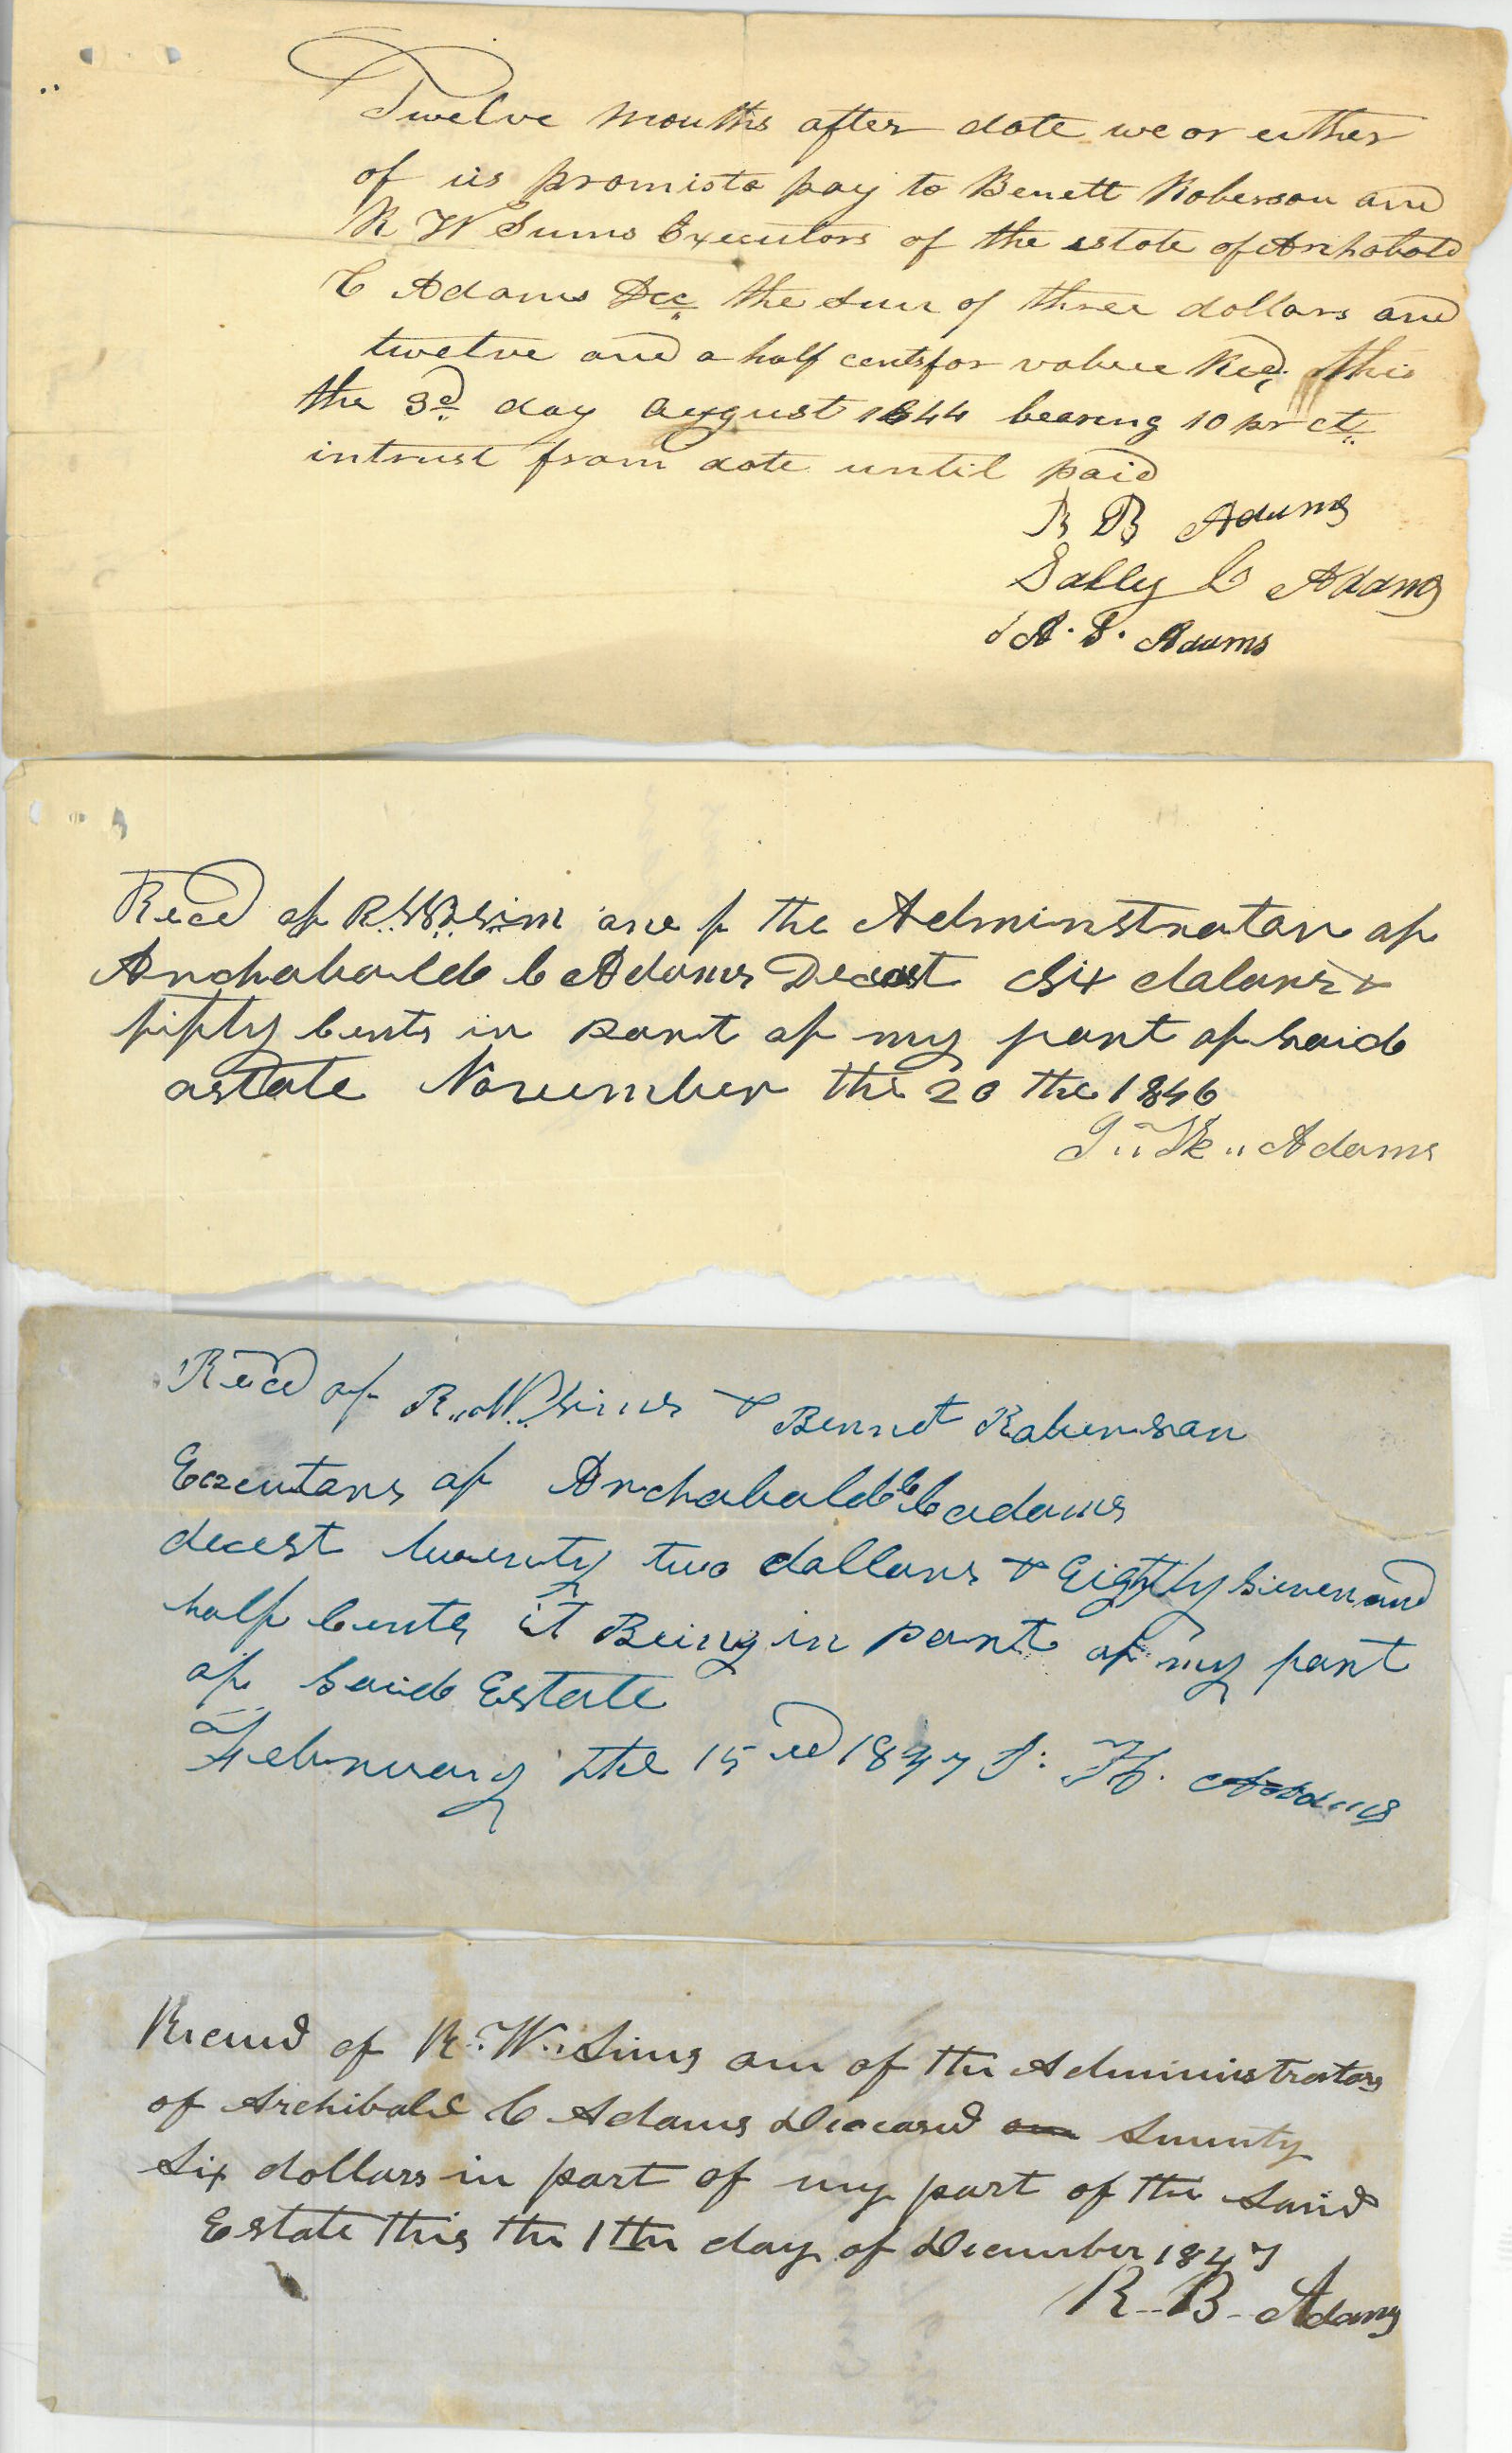 Twelve months after date we or either
of us promis to pay to Benett Roberson and
R W Sims Executors of the estate of Archabald
C Adams Dec the sum of three dollars and
twelve and a half cents for value Recd this
the 3d day august 1844 bearing 10 pr ct
intrust from date until paid
R B Adams
Sally C Adams
A. S. Adams
Recd of R. W. Sim one of the Adminstrator of
Archabald C Adams Decest Six dolars &
fifty Cents in part of my part of said
astate November the 20 the 1846
Adams
Recd of R. W. Sims & Bennet Roberson
Executors of Archabald C Adams
decest twenty two dollars & Eighty Seven and
half Cents it Being in part of my part
of Said Estate
February the 15 ed 1847 Adams
Recievd of R. W. Sims one of the Administrators
of Archibald C Adams Deceasd Seventy
Six dollars in part of my part of the Said
Estate this the 1th day of December 1847
R. B. Adams